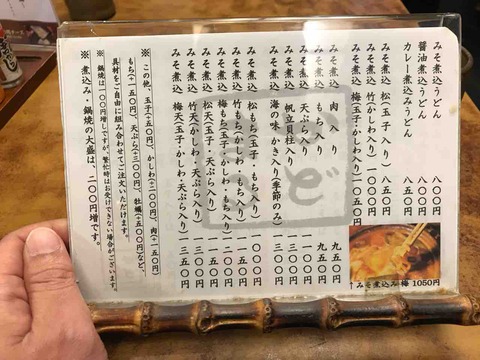 みそ煮込うどん 八〇〇円
醤油煮込うどん 八〇〇円
カレー煮込みうどん 八五〇円
みそ煮込 松(玉子入り) 八五〇円
みそ煮込 竹(かしわ入り) 一〇〇〇円
みそ煮込 梅(玉子・かしわ入り) 一〇五〇円
みそ煮込 肉入り 九五〇円
みそ煮込 もち入り 九五〇円
みそ煮込 天ぷら入り 一一〇〇円
みそ煮込 帆立貝柱入り 一三〇〇円
みそ煮込 海の味 かき入り(季節のみ) 一三〇〇円
みそ煮込 松もち(玉子・もち入り) 一〇〇〇円
みそ煮込 竹もち(かしわ・もち入り) 一一五〇円
みそ煮込 梅もち(玉子・かしわ・もち入り) 一二〇〇円
みそ煮込 松天(玉子・天ぷら入り) 一一五〇円
みそ煮込 竹天(かしわ・天ぷら入り) 一三〇〇円
みそ煮込 梅天(玉子・かしわ・天ぷら入り) 一三五〇円
※この他、玉子(+五〇円)、かしわ(+二〇〇円)、肉(+一五〇円)
もち(+一五〇円)、天ぷら(+三〇〇円)、牡蠣(+五〇〇円)など、
具材をご自由に組み合わせてご注文いただけます。
※鍋焼は一〇〇円増しですが、繁忙時はお受けできない場合がございます。
※煮込み・鍋焼の大盛は、二〇〇円増です。
↑みそ煮込み梅 1050円